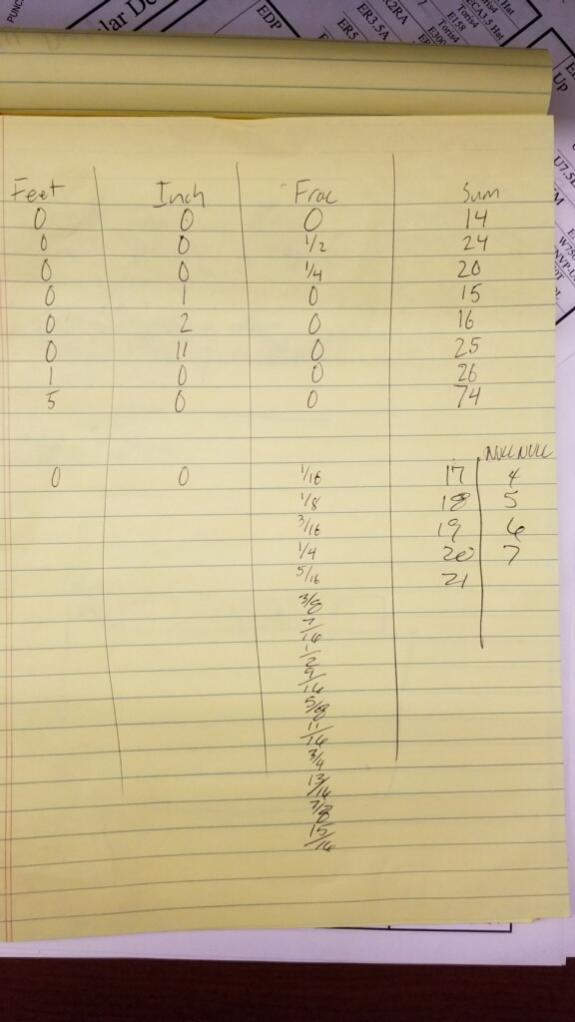 PUNC
ilar De
EDP
ER5
ER3.5A
R2RA
E300
Toris4
E158
Toris4
ECA3.5 Hat
Hat
Up
U7.5
Feet Inch Frac Sum
0 0 0 14
0 0 1/2 24
0 0 1/4 20
0 1 0 15
0 2 0 16
0 11 0 25
1 0 0 26
5 0 0 74
NULL NULL
0 0 1/16 17 4
1/8 18 5
3/16 19 6
1/4 20 7
5/16 21
3/8
7/16
1/2
9/16
5/8
11/16
3/4
13/16
7/8
15/16